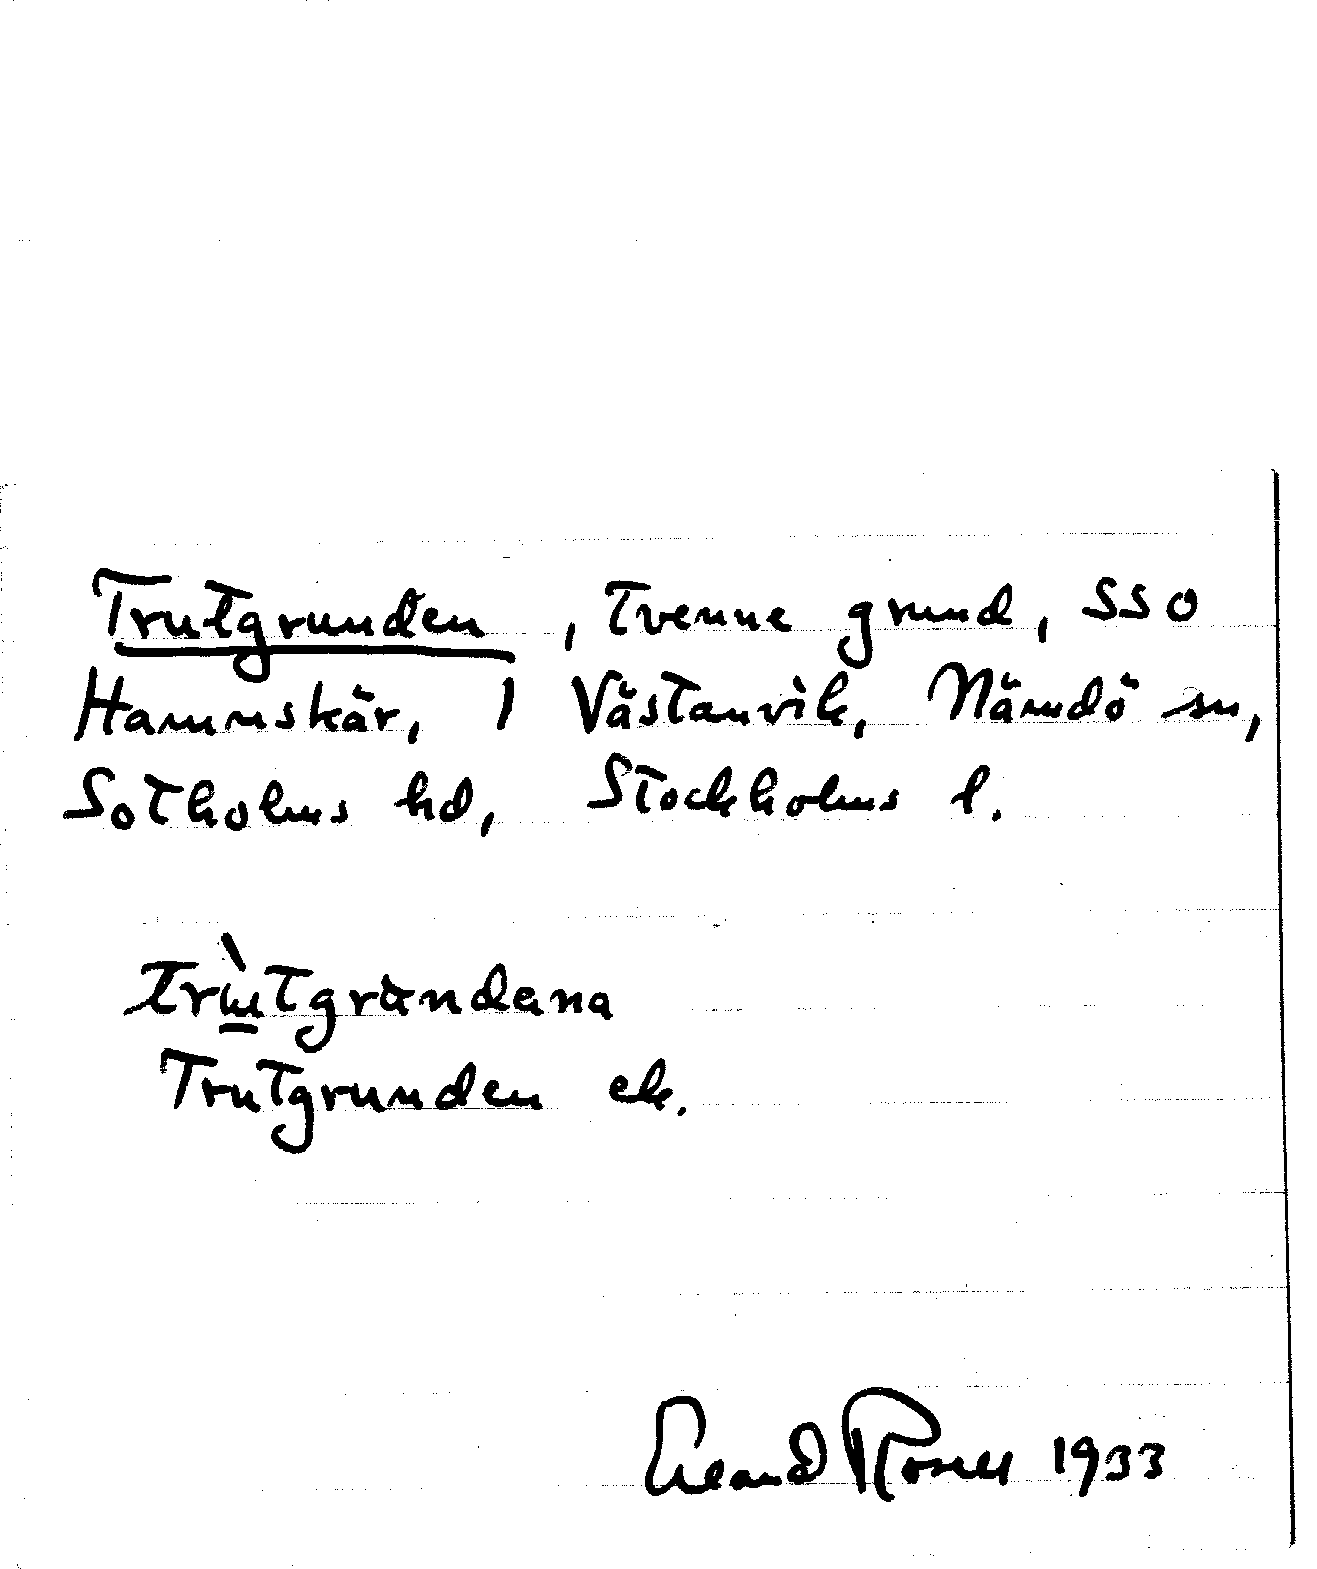 Trutgrunden, Tvenne grund, SSO
Hamnskär, 1 Västanvik, Nämdö sn,
Sotholms hd, Stockholms l.
trùtgrundana
Trutgrunden ek.
Erland Rosell 1933